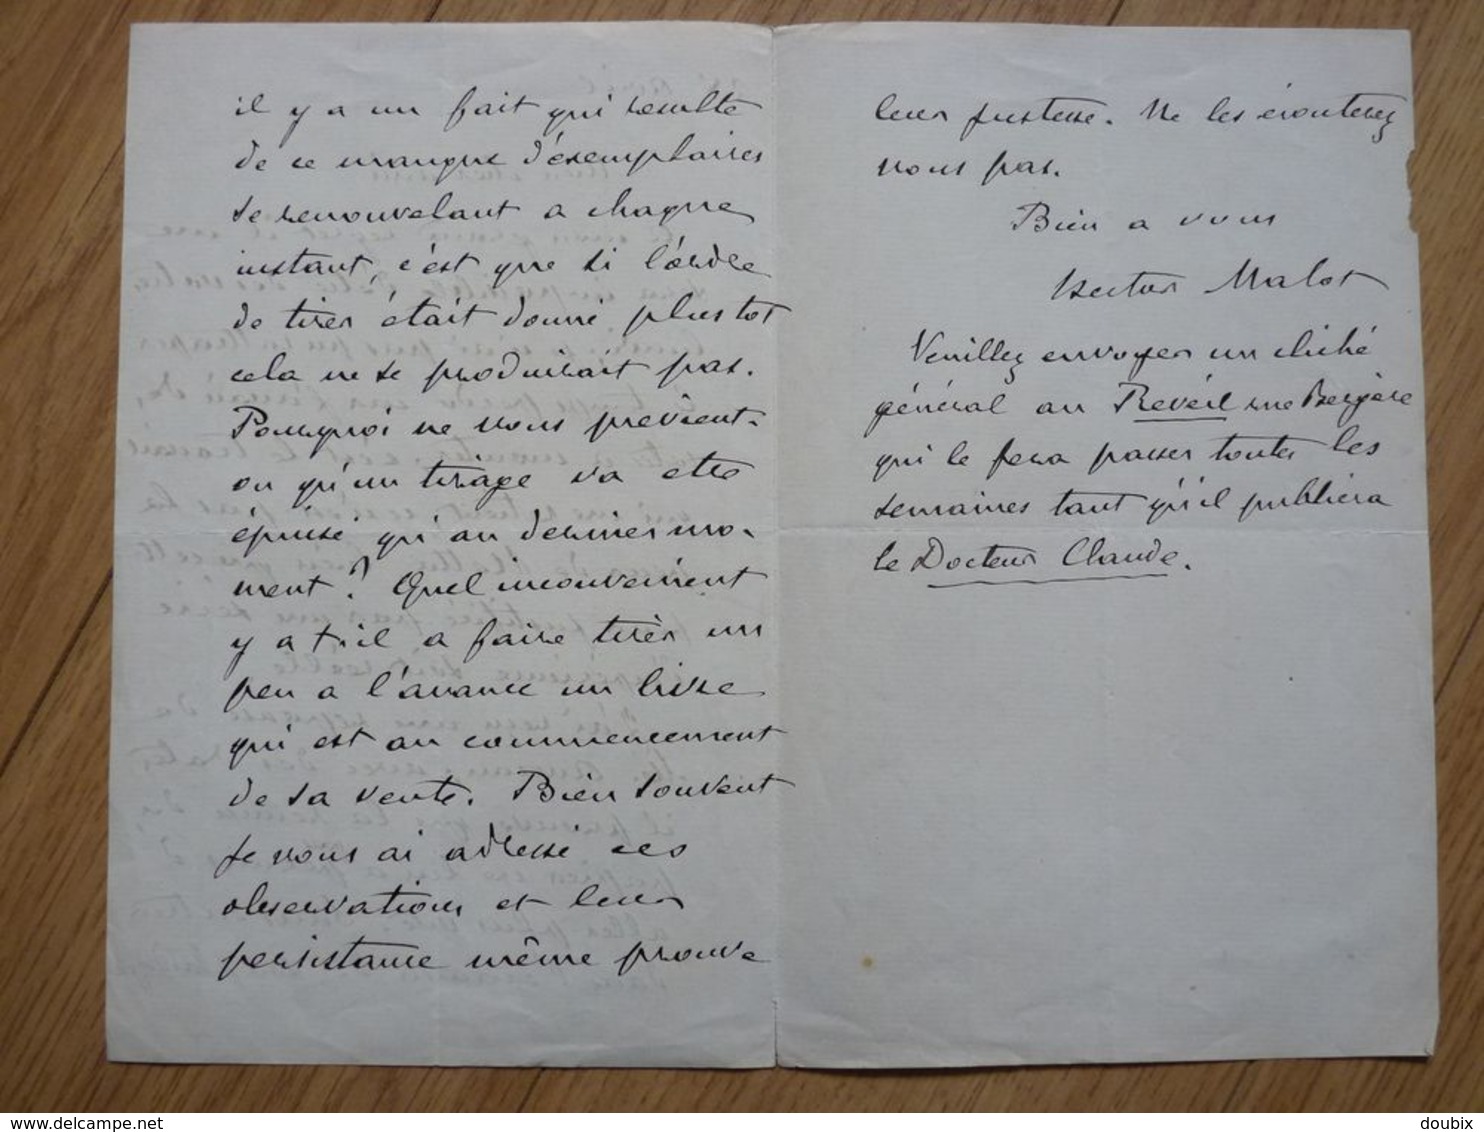 il y a un fait qui resulte
de ce manque d'exemplaires
se renouvelant a chaque
instant, c'est que si l'ordre
de tirer était donné plus tot
cela ne se produirait pas.
Pourquoi ne nous previent-
on qu'un tirage va etre
épuisé qu'au dernier mo-
ment? Quel inconvenient
y a t-il a faire tirer un
peu a l'avance un livre
qui est au commencement
de sa vente. Bien souvent
je vous ai adressé ces
observations et leur
persistance même prouve
leur justesse. Ne les écouterez
vous pas.
Bien a vous
Hector Malot
Veuillez envoyer un cliché
général au Réveil rue Bergère
qui le fera passer toutes les
semaines tant qu'il publiera
le Docteur Claude.
delcampe.net
doubix